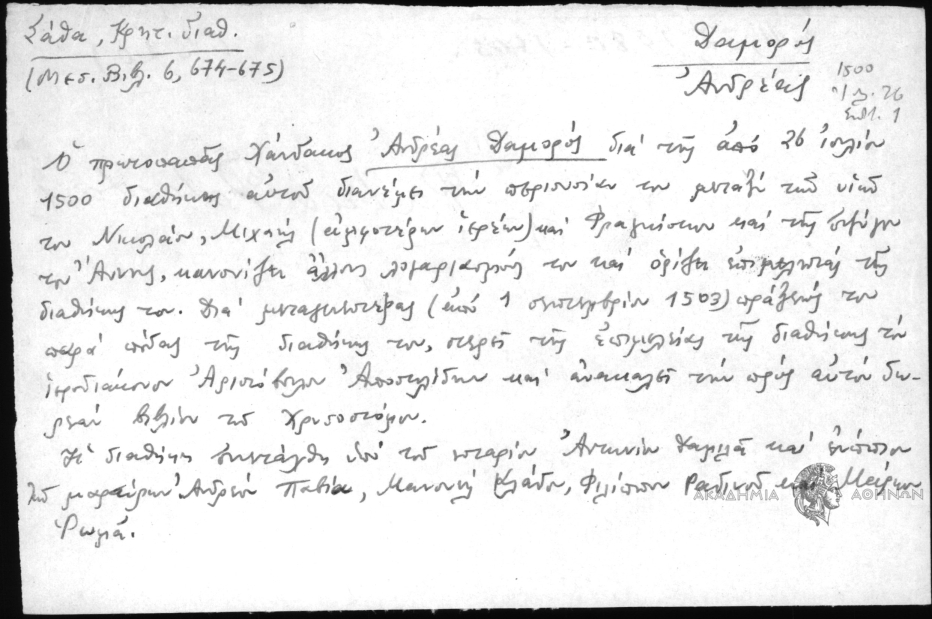 Σάθα, Κρητ. διαθ.
(Μεσ. Βιβλ. 6, 674-675)
Δαμορός
Ἀνδρέας
1500
Ἰλ. 26
Σεπτ. 1
Ὁ πρωτοπαπᾶς Χάνδακος Ἀνδρέας Δαμορός διά τῆς ἀπό 26 ἰουλίου
1500 διαθήκης αὐτοῦ διανέμει τήν περιουσίαν του μεταξύ τῶν υἱῶν
του Νικολάου, Μιχαήλ (ἀμφοτέρων ἱερέων) καί Φραγκίσκου καί τῆς συζύγου
του Ἄννης, κανονίζει ἄλλους λογαριασμούς του καί ὁρίζει ἐπιμελητάς τῆς
διαθήκης του. Διά μεταγενεστέρας (ἀπό 1 σεπτεμβρίου 1503) πράξεώς του
παρά πόδας τῆς διαθήκης του, στερεῖ τῆς ἐπιμελείας τῆς διαθήκης τόν
ἱεροδιάκονον Ἀριστόβουλον Ἀποστολίδην καί ἀνακαλεῖ τήν πρός αὐτόν δω-
ρεάν βιβλίου τοῦ Χρυσοστόμου.
Ἡ διαθήκη συνετάχθη ὑπό τοῦ νοταρίου Ἀντωνίου Δαμιλᾶ καί ἐνώπιον
τῶν μαρτύρων Ἀνδρέου Παβία, Μανουήλ Κλάδου, Φιλίππου Ῥαδινοῦ καί Μάρκου
Ῥωμᾶ.
ΑΚΑΔΗΜΙΑ ΑΘΗΝΩΝ